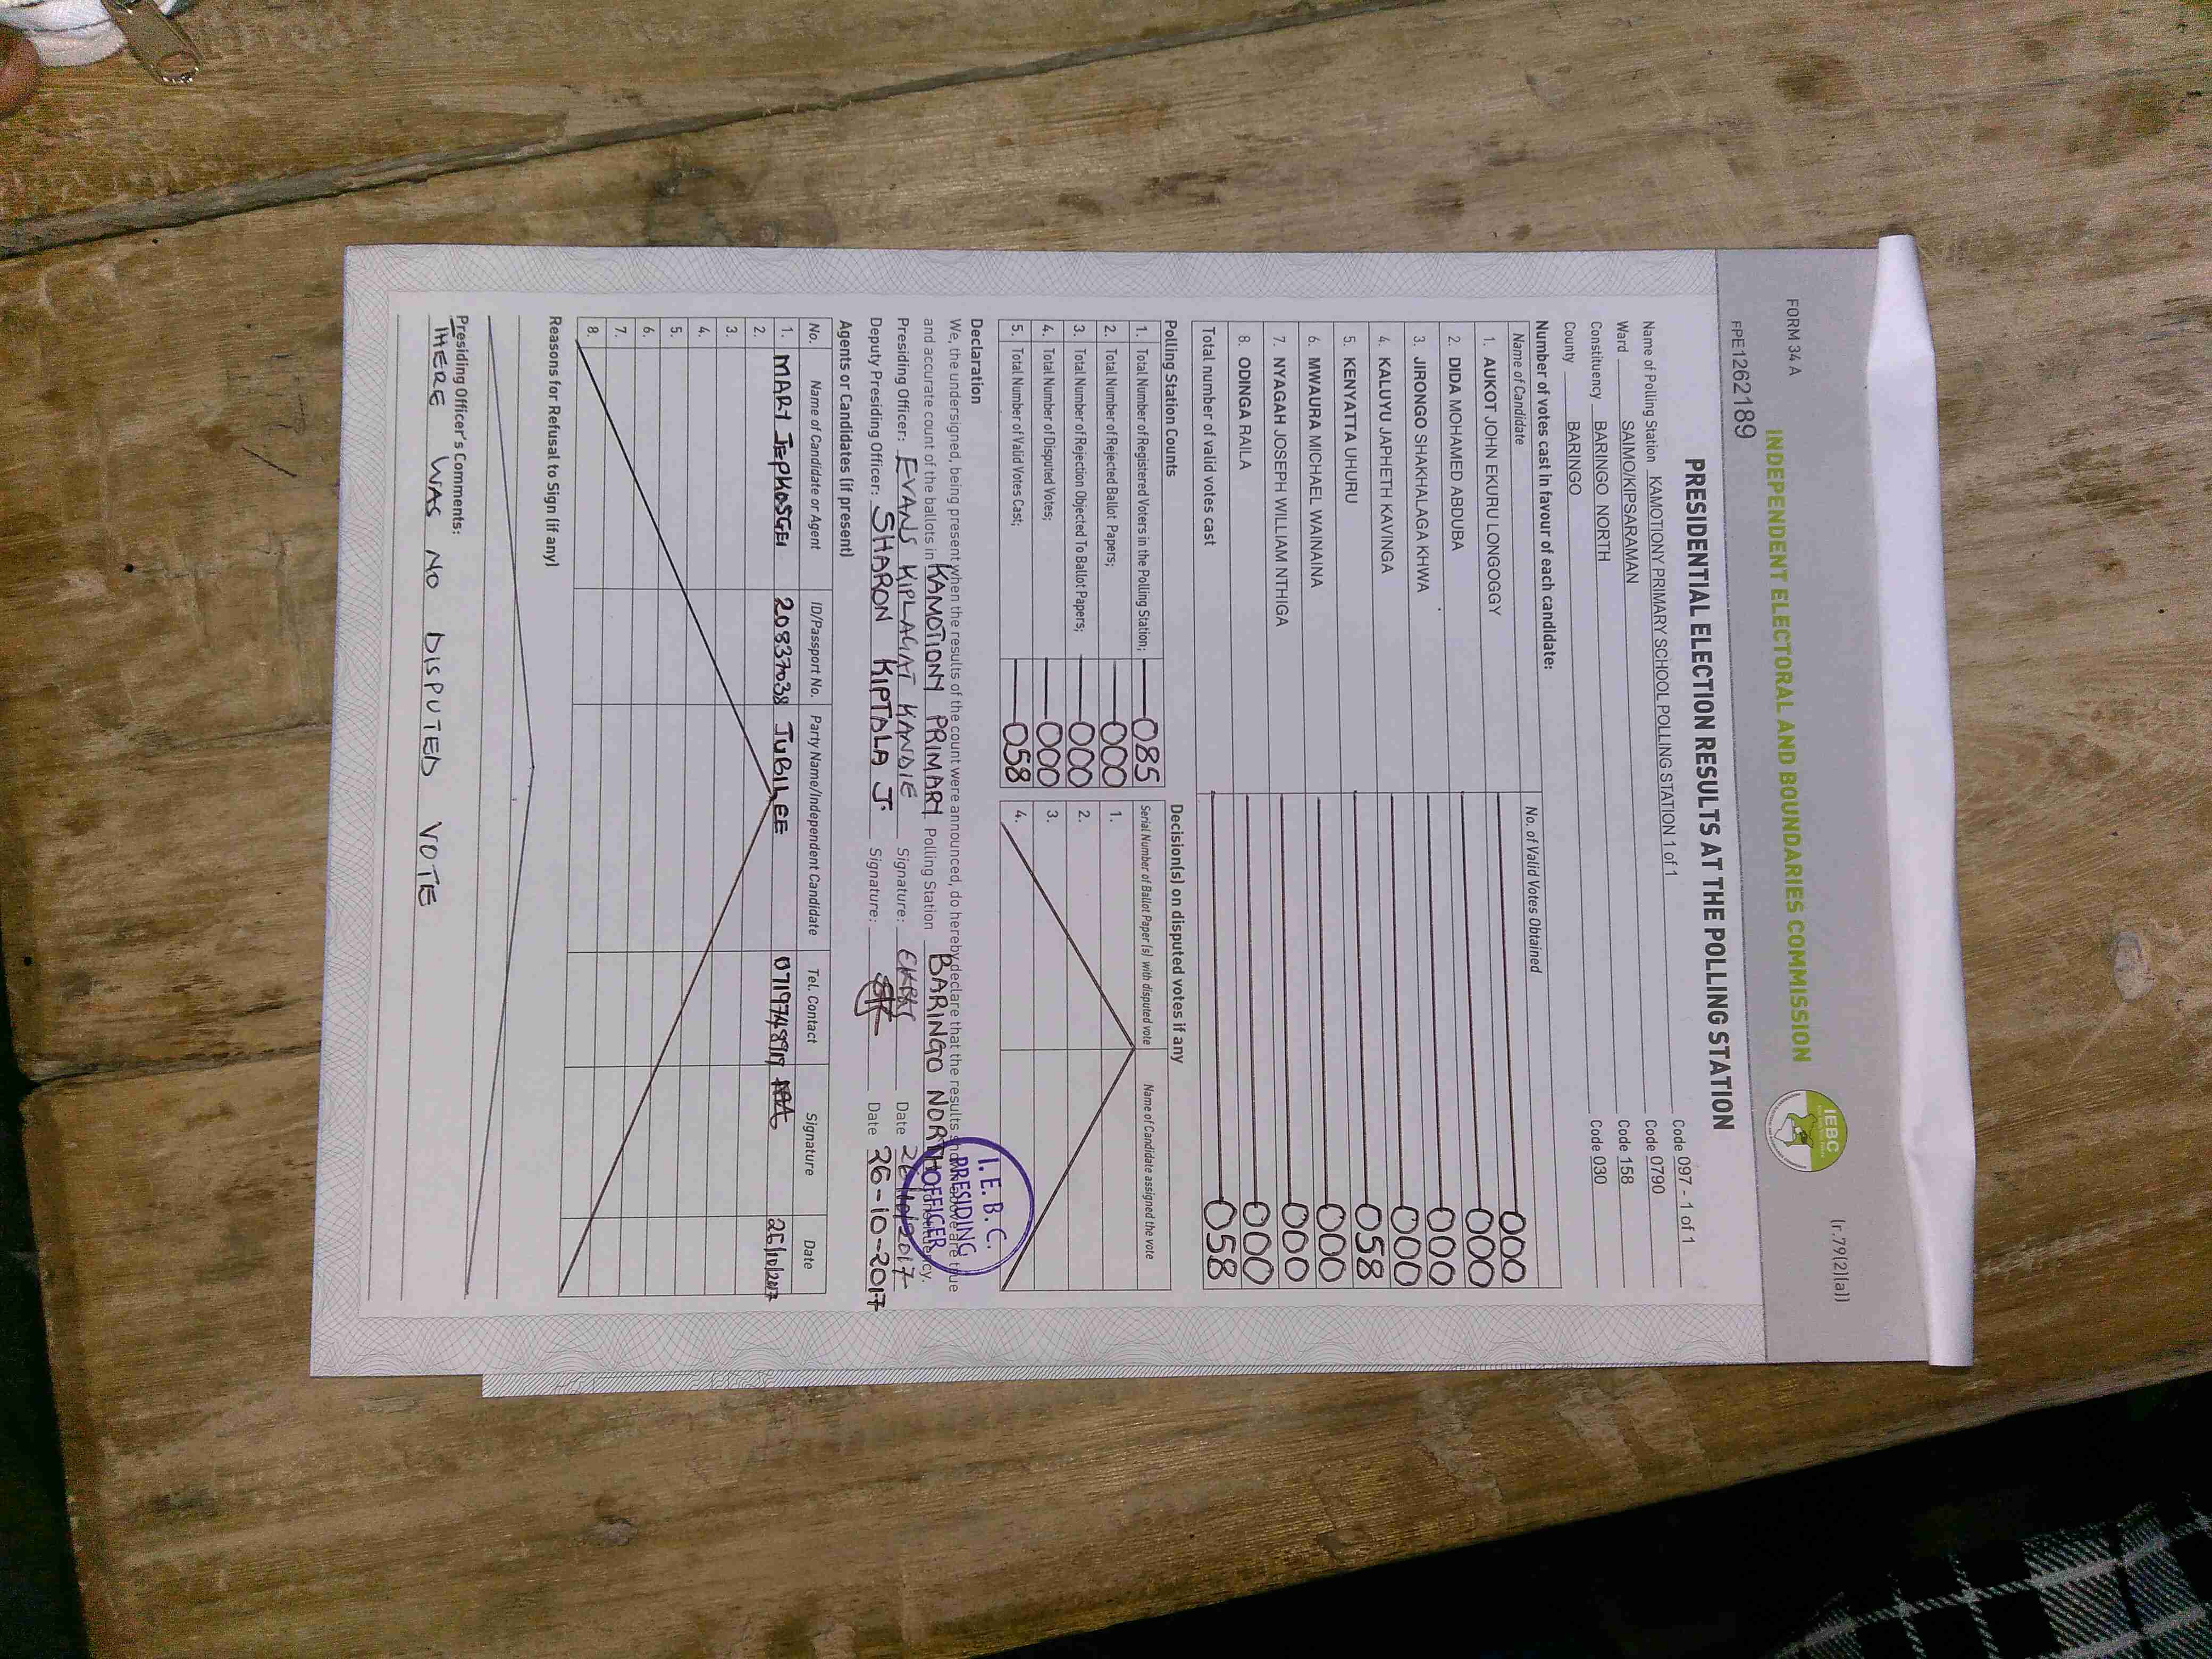 FORM 34 A
(r.79(2)(a))
INDEPENDENT ELECTORAL AND BOUNDARIES COMMISSION
IEBC
FPE1262189
PRESIDENTIAL ELECTION RESULTS AT THE POLLING STATION
Name of Polling Station KAMOTIONY PRIMARY SCHOOL POLLING STATION 1 of 1 Code 097 - 1 of 1
Ward SAIMO/KIPSARAMAN Code 0790
Constituency BARINGO NORTH Code 158
County BARINGO Code 030
Number of votes cast in favour of each candidate:
Name of Candidate No. of Valid Votes Obtained
1. AUKOT JOHN EKURU LONGOGGY 000
2. DIDA MOHAMED ABDUBA 000
3. JIRONGO SHAKHALAGA KHWA 000
4. KALUYU JAPHETH KAVINGA 000
5. KENYATTA UHURU 058
6. MWAURA MICHAEL WAINAINA 000
7. NYAGAH JOSEPH WILLIAM NTHIGA 000
8. ODINGA RAILA 000
Total number of valid votes cast 058
Polling Station Counts Decision(s) on disputed votes if any
1. Total Number of Registered Voters in the Polling Station; 085 Serial Number of Ballot Paper (s) with disputed vote Name of Candidate assigned the vote
2. Total Number of Rejected Ballot Papers; 000 1.
3. Total Number of Rejection Objected To Ballot Papers; 000 2.
4. Total Number of Disputed Votes; 000 3.
5. Total Number of Valid Votes Cast; 058 4.
I. E. B. C.
PRESIDING
OFFICER
Declaration
We, the undersigned, being present when the results of the count were announced, do hereby declare that the results shown above are true
and accurate count of the ballots in KAMOTIONY PRIMARY Polling Station BARINGO NORTH Constituency.
Presiding Officer: EVANS KIPLAGAT KANDIE Signature: Date 26/10/2017
Deputy Presiding Officer: SHARON KIPTALA J. Signature: Date 26-10-2017
Agents or Candidates (if present)
No. Name of Candidate or Agent ID/Passport No. Party Name/Independent Candidate Tel. Contact Signature Date
1. MARY JEPKOSGEI 20837038 JUBILEE 26/10/2017
2.
3.
4.
5.
6.
7.
8.
Reasons for Refusal to Sign (if any)
Presiding Officer's Comments:
THERE WAS NO DISPUTED VOTE